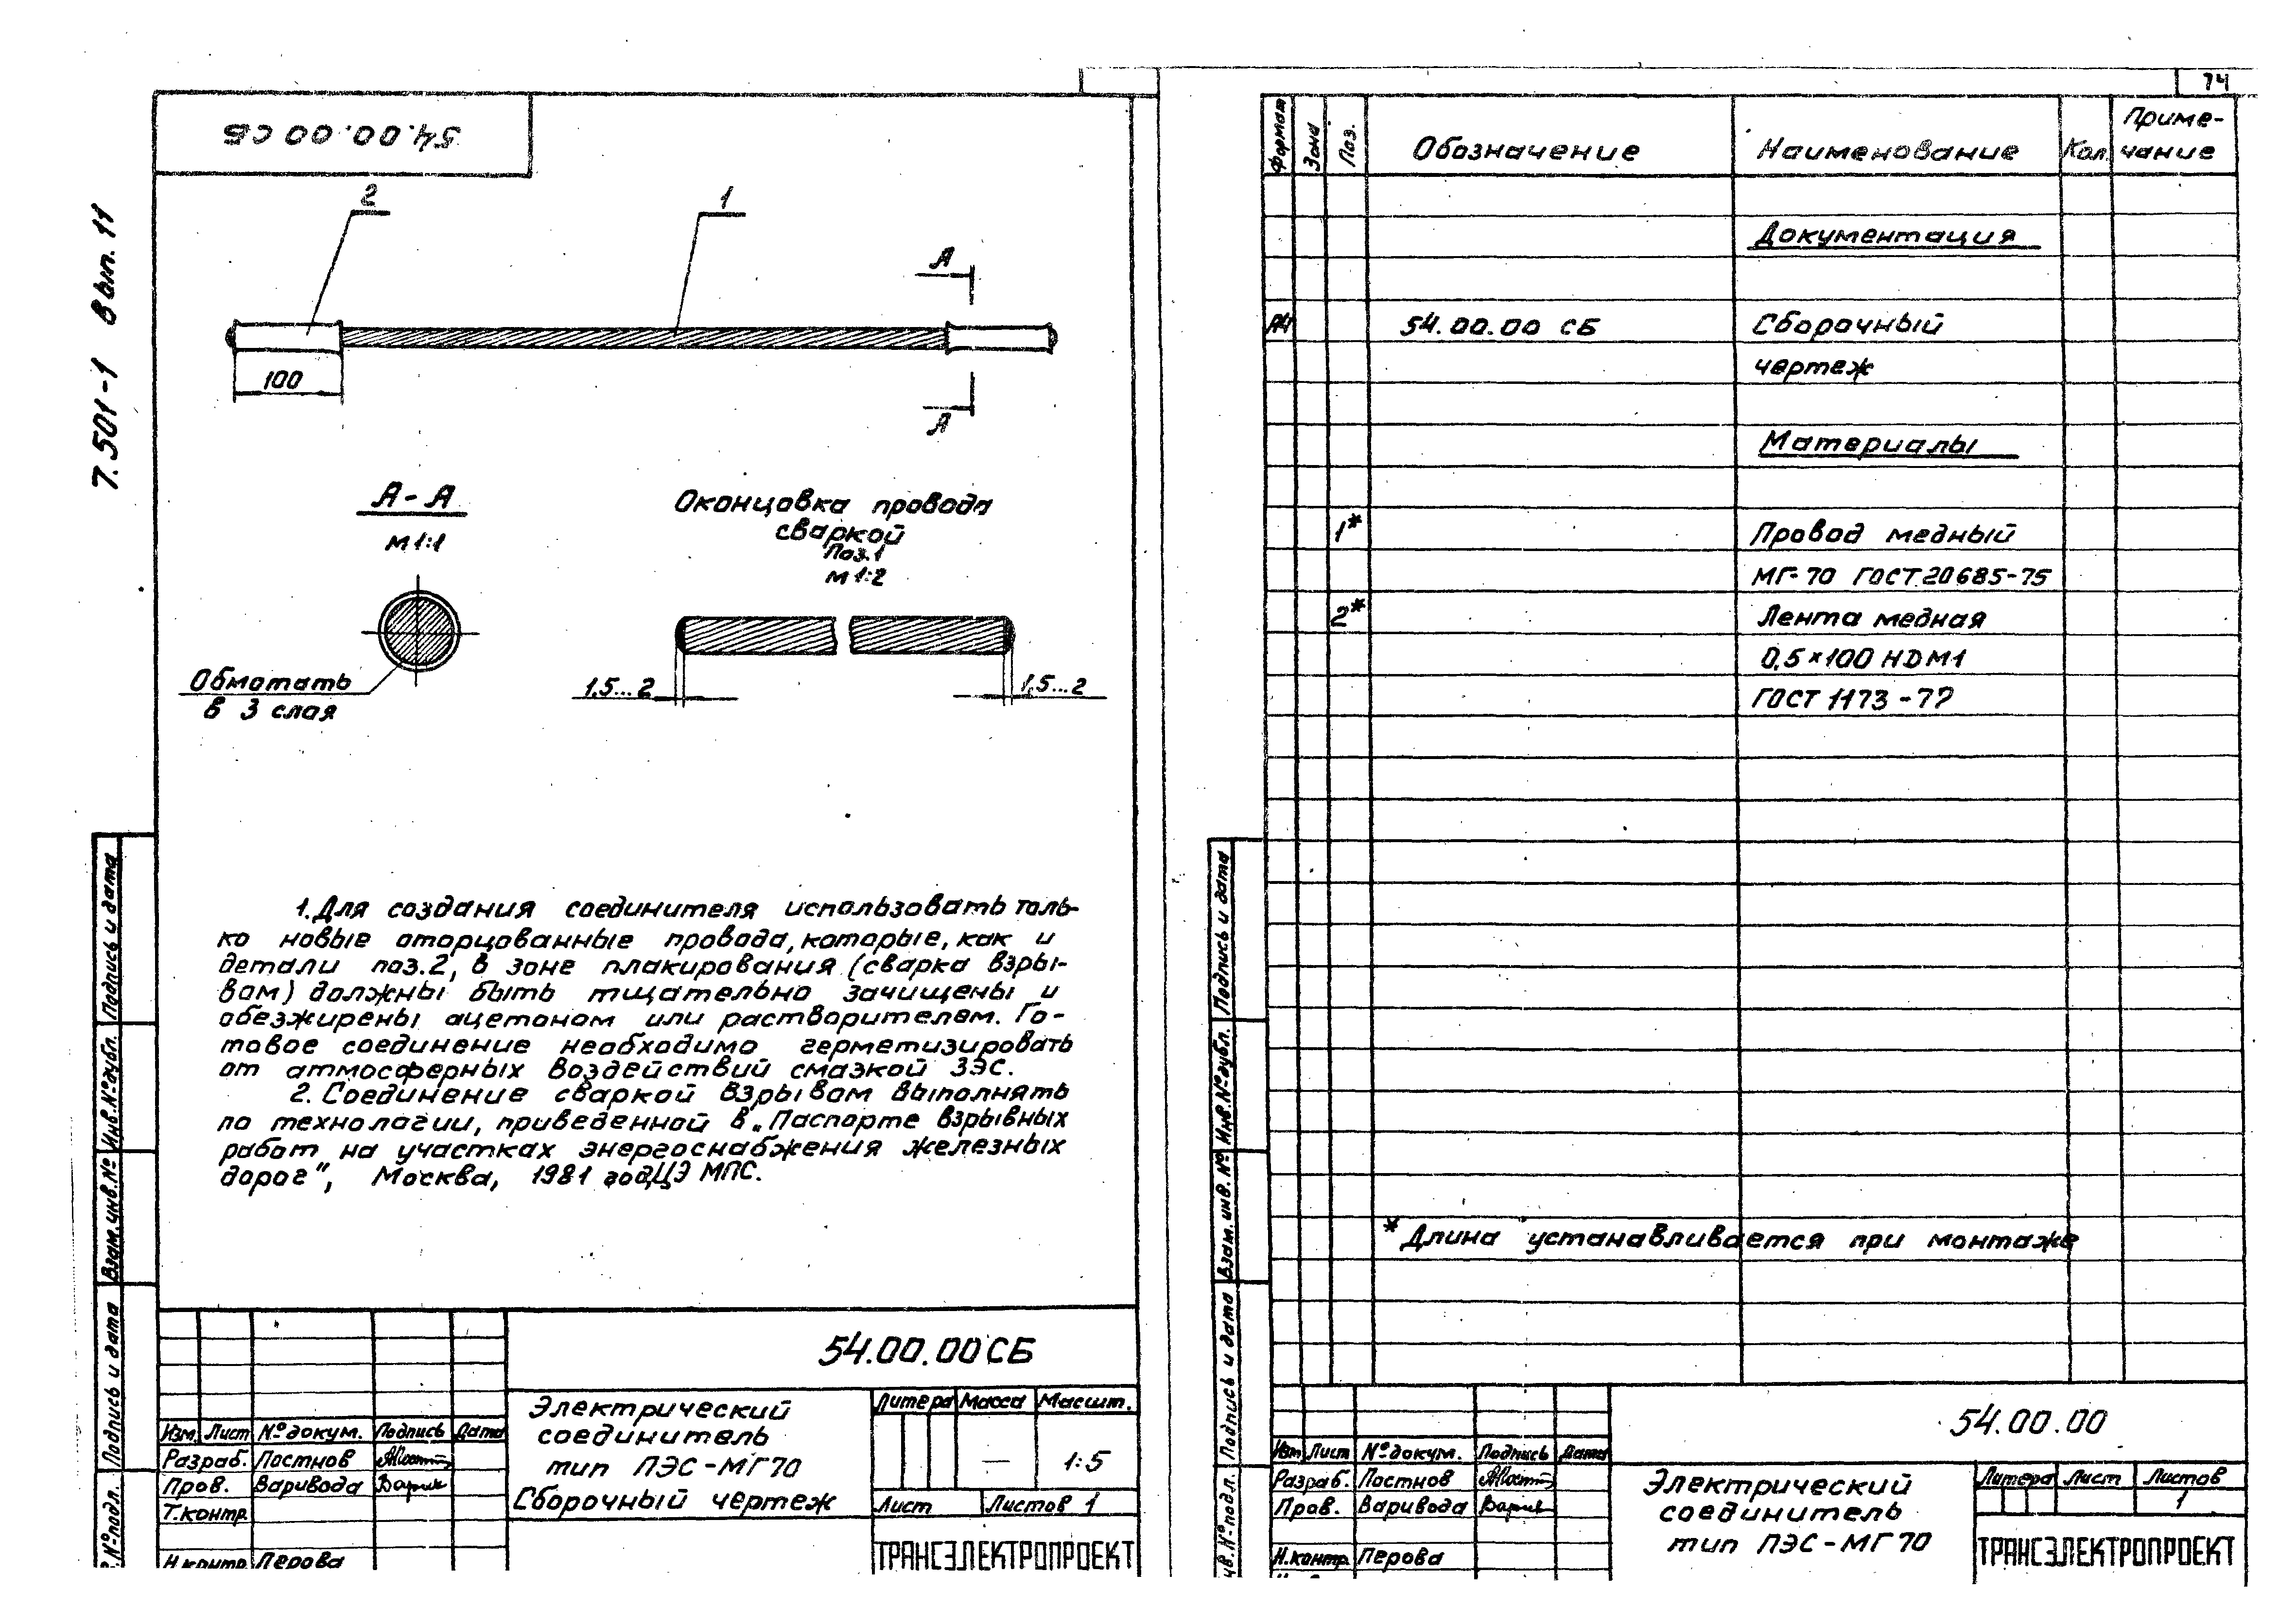 74
54.00.00 СБ
7.501-1 Вып. 11
2
1
А
100
А
А-А
М 1:1
Обмотать
в 3 слоя
Оконцовка провода
сваркой
Поз.1
М 1:2
1,5...2
1,5...2
1. Для создания соединителя использовать толь-
ко новые оторцованные провода, которые, как и
детали поз.2, в зоне плакирования (сварка взры-
вом) должны быть тщательно зачищены и
обезжирены ацетоном или растворителем. Го-
товое соединение необходимо герметизировать
от атмосферных воздействий смазкой ЗЭС.
2. Соединение сваркой взрывом выполнять
по технологии, приведенной в „Паспорте взрывных
работ на участках энергоснабжения железных
дорог", Москва, 1981 год, ЦЭ МПС.
Подпись и дата
Инв.№ дубл.
Взам.инв.№
Подпись и дата
.№ подл.
54.00.00 СБ
Электрический
соединитель
тип ПЭС-МГ70
Сборочный чертеж
Литера Масса Масшт.
— 1:5
Лист Листов 1
ТРАНСЭЛЕКТРОПРОЕКТ
Изм. Лист № докум. Подпись Дата
Разраб. Постнов
Пров. Варивода
Т.контр.
Н.контр. Перова
Формат Зона Поз. Обозначение Наименование Кол. Приме-
чание
Документация
А4 54.00.00 СБ Сборочный
чертеж
Материалы
1* Провод медный
МГ-70 ГОСТ 20685-75
2* Лента медная
0,5×100 НДМ1
ГОСТ 1173-77
* Длина устанавливается при монтаже
Подпись и дата
Инв.№ дубл.
Взам.инв.№
Подпись и дата
нв.№ подл.
54.00.00
Изм Лист № докум. Подпись Дата
Разраб. Постнов
Пров. Варивода
Н.контр. Перова
Электрический
соединитель
тип ПЭС-МГ70
Литера Лист Листов
1
ТРАНСЭЛЕКТРОПРОЕКТ